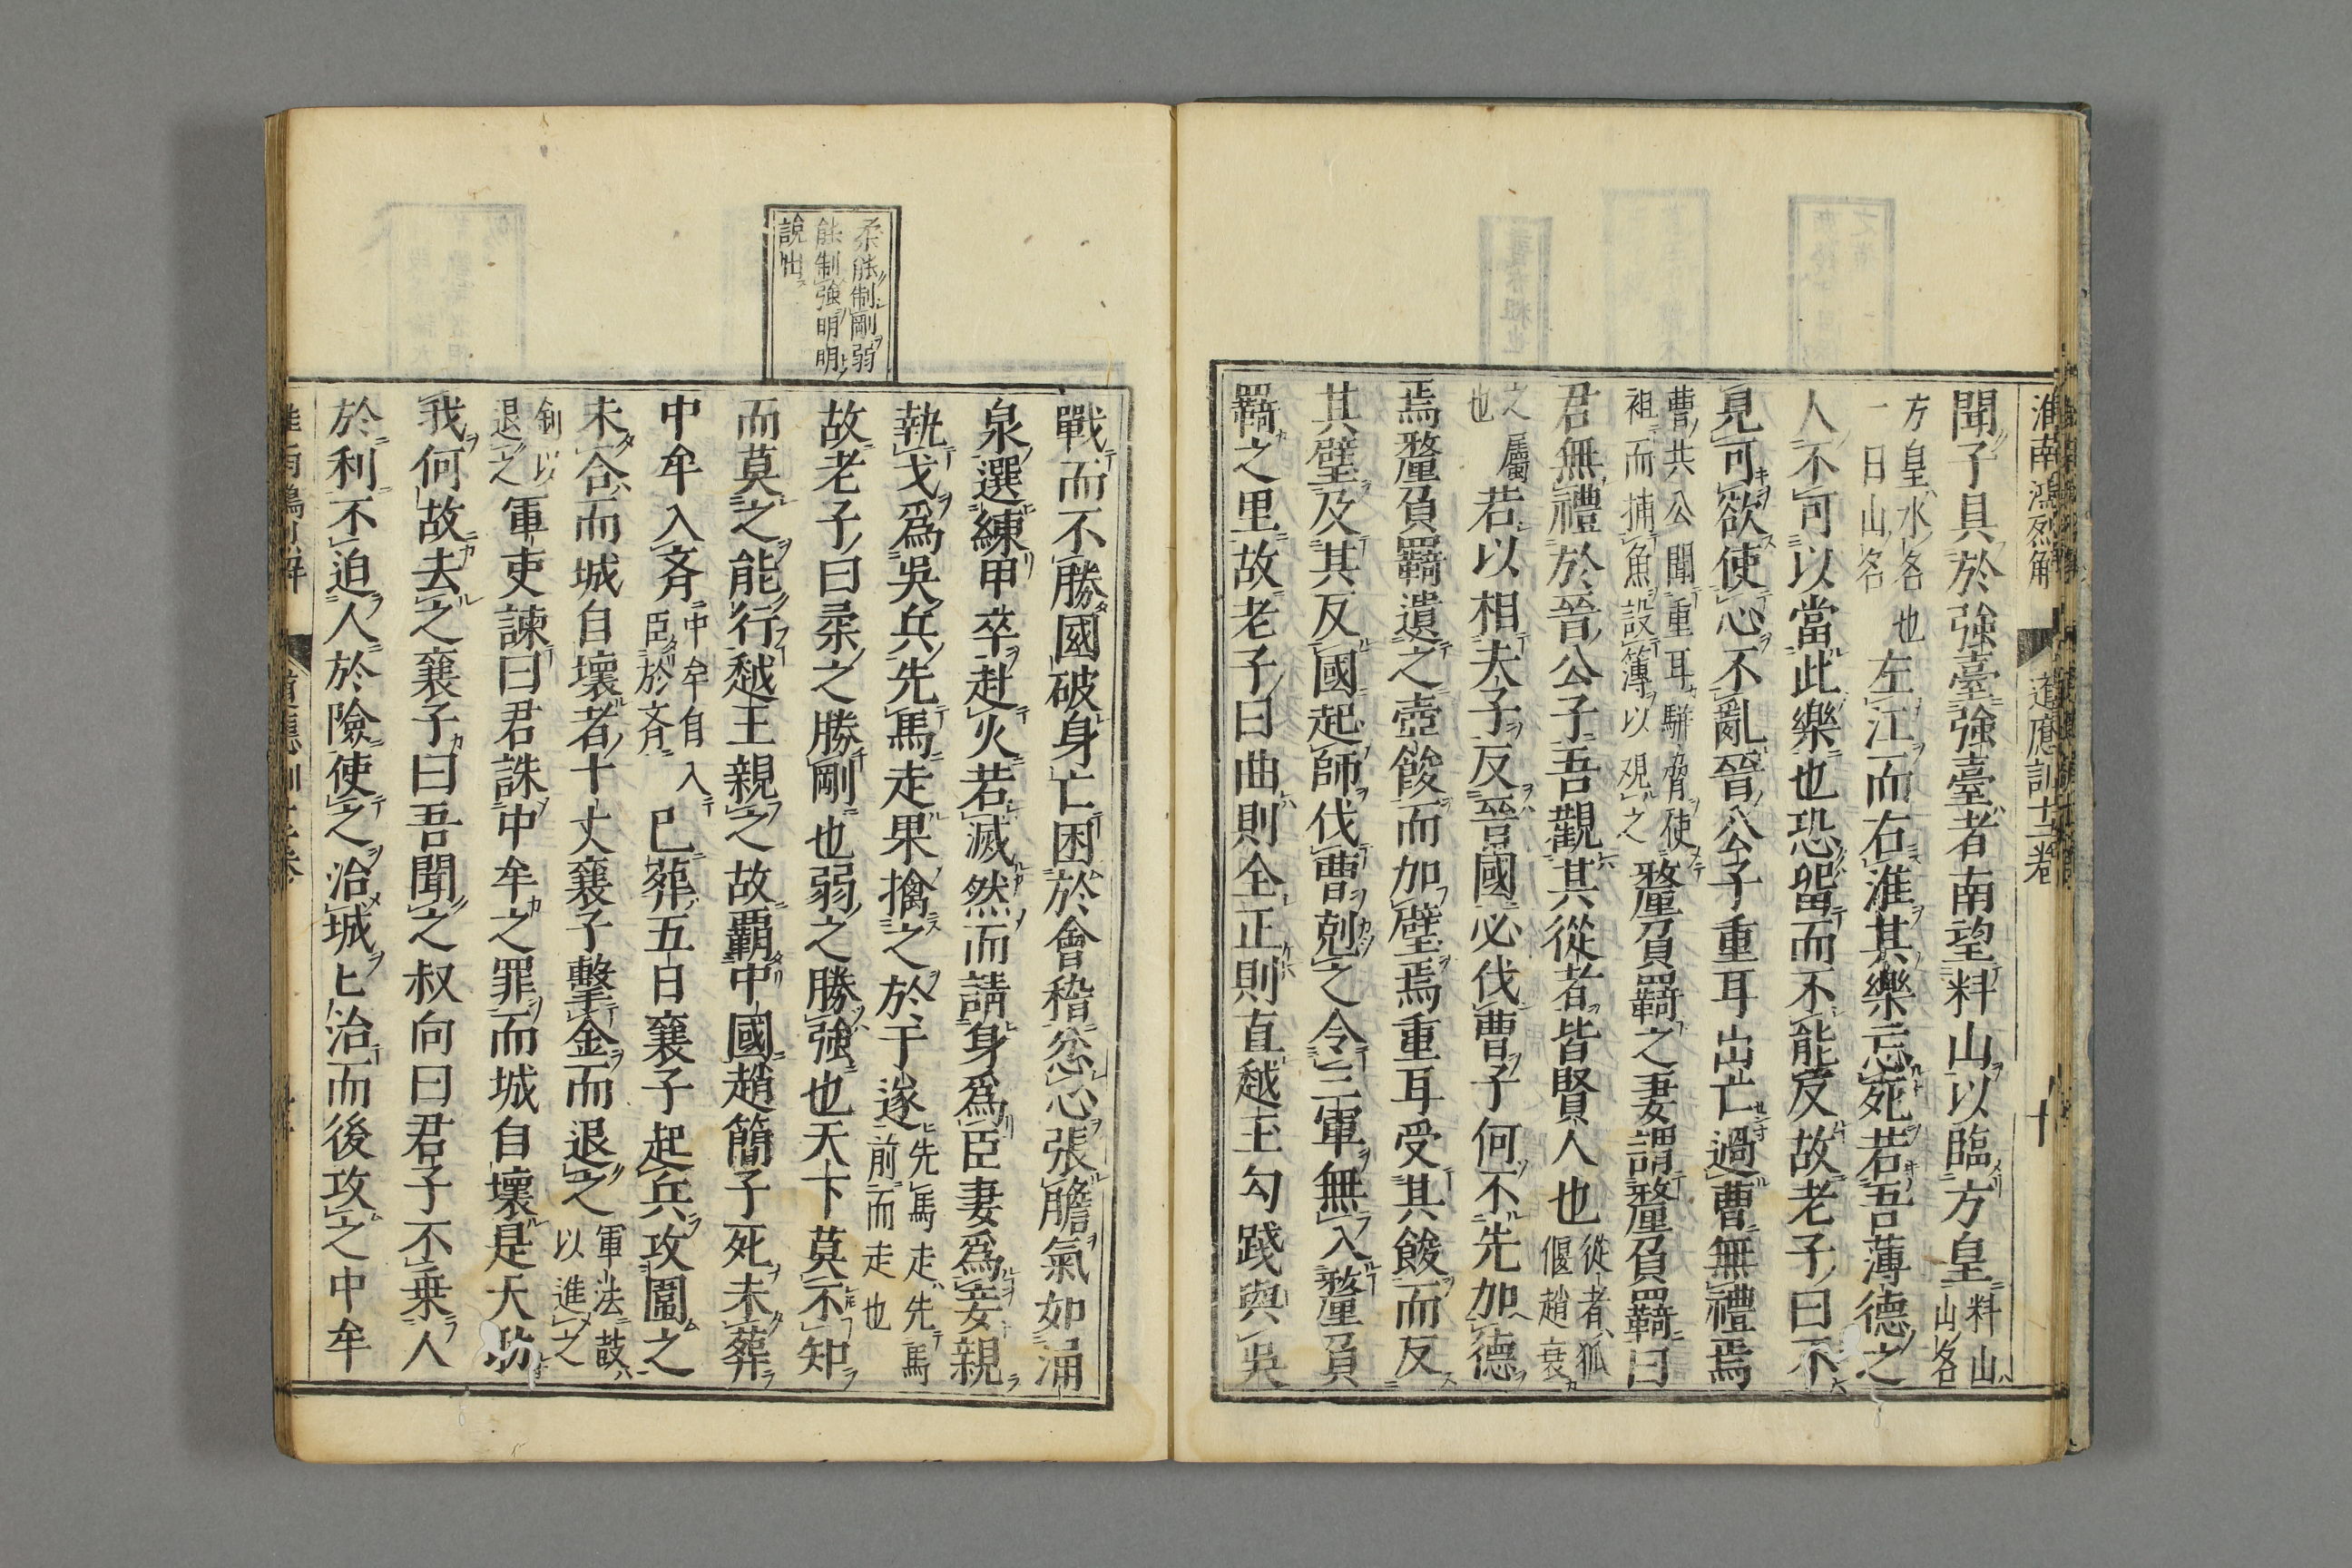 淮南鴻烈解 道應訓十二卷 十
聞子具於強臺強臺者南望料山以臨方皇料山山名
方皇水名也一曰山名左江而右淮其樂忘死若吾薄德之
人不可以當此樂也恐留而不能反故老子曰不
見可欲使心不亂晉公子重耳出亡過曹無禮焉
曹共公聞重耳駢脅使袒而捕魚設簿以視之釐負羈之妻謂釐負羈曰
君無禮於晉公子吾觀其從者皆賢人也從者狐偃趙衰
之屬也若以相夫子反晉國必伐曹子何不先加德
焉釐負羈遺之壺餕而加璧焉重耳受其餕而反
其璧及其反國起師伐曹剋之令三軍無入釐負
羈之里故老子曰曲則全正則直越王勾踐與吳
柔能制剛弱
能制強明明
說出
戰而不勝國破身亡困於會稽忿心張膽氣如涌
泉選練甲卒赴火若滅然而請身為臣妻為妾親
執戈為吳兵先馬走果擒之於干遂先馬走先馬前而走也
故老子曰柔之勝剛也弱之勝強也天下莫不知
而莫之能行越王親之故霸中國趙簡子死未葬
中牟入齊中牟自入臣於齊已葬五日襄子起兵攻圍之
未合而城自壞者十丈襄子擊金而退之軍法鼓以進之
釗以退之軍吏諫曰君誅中牟之罪而城自壞是天助
我何故去之襄子曰吾聞之叔向曰君子不乗人
於利不迫人於險使之治城匕治而後攻之中牟